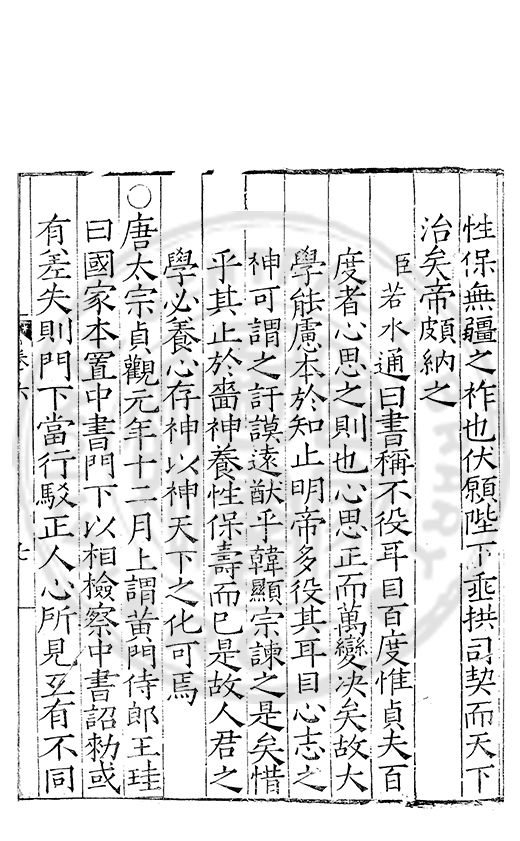 性保無疆之祚也伏願陛下垂拱司契而天下
治矣帝頗納之
臣若水通曰書稱不役耳目百度惟貞夫百
度者心思之則也心思正而萬變决矣故大
學能慮本於知止明帝多役其耳目心志之
神可謂之訏謨遠猷乎韓顯宗諫之是矣惜
乎其止於嗇神養性保壽而已是故人君之
學必養心存神以神天下之化可焉
○唐太宗貞觀元年十二月上謂黄門侍郎王珪
曰國家本置中書門下以相檢察中書詔勑或
有差失則門下當行駁正人心所見互有不同
卷六
七